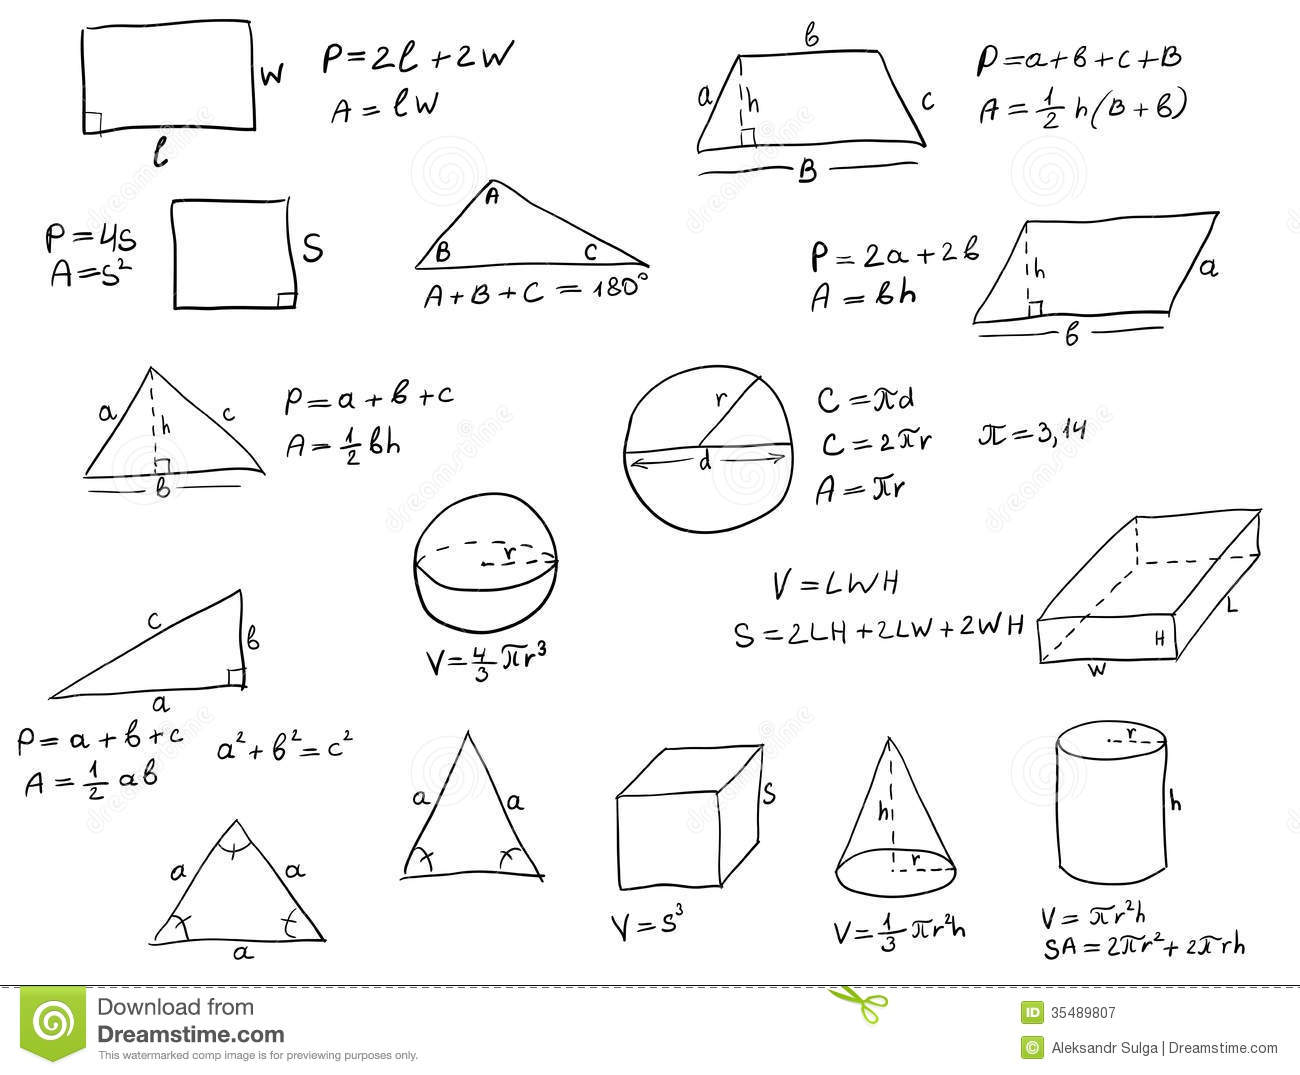 w
P=2l+2w
A=lw
l
b
a
h
c
B
P=a+b+c+B
A=1/2 h(B+b)
P=4s
A=s²
S
A
B
C
A+B+C=180°
P=2a+2b
A=bh
h
a
b
a
h
c
b
P=a+b+c
A=1/2 bh
r
d
C=πd
C=2πr
A=πr
π=3,14
r
V=4/3 πr³
V=LWH
S=2LH+2LW+2WH
L
H
W
c
b
a
P=a+b+c
A=1/2 ab
a²+b²=c²
a
a
a
a
a
S
V=S³
h
r
V=1/3 πr²h
r
h
V=πr²h
SA=2πr²+2πrh
dreamstime
Download from
Dreamstime.com
This watermarked comp image is for previewing purposes only.
ID 35489807
© Aleksandr Sulga | Dreamstime.com